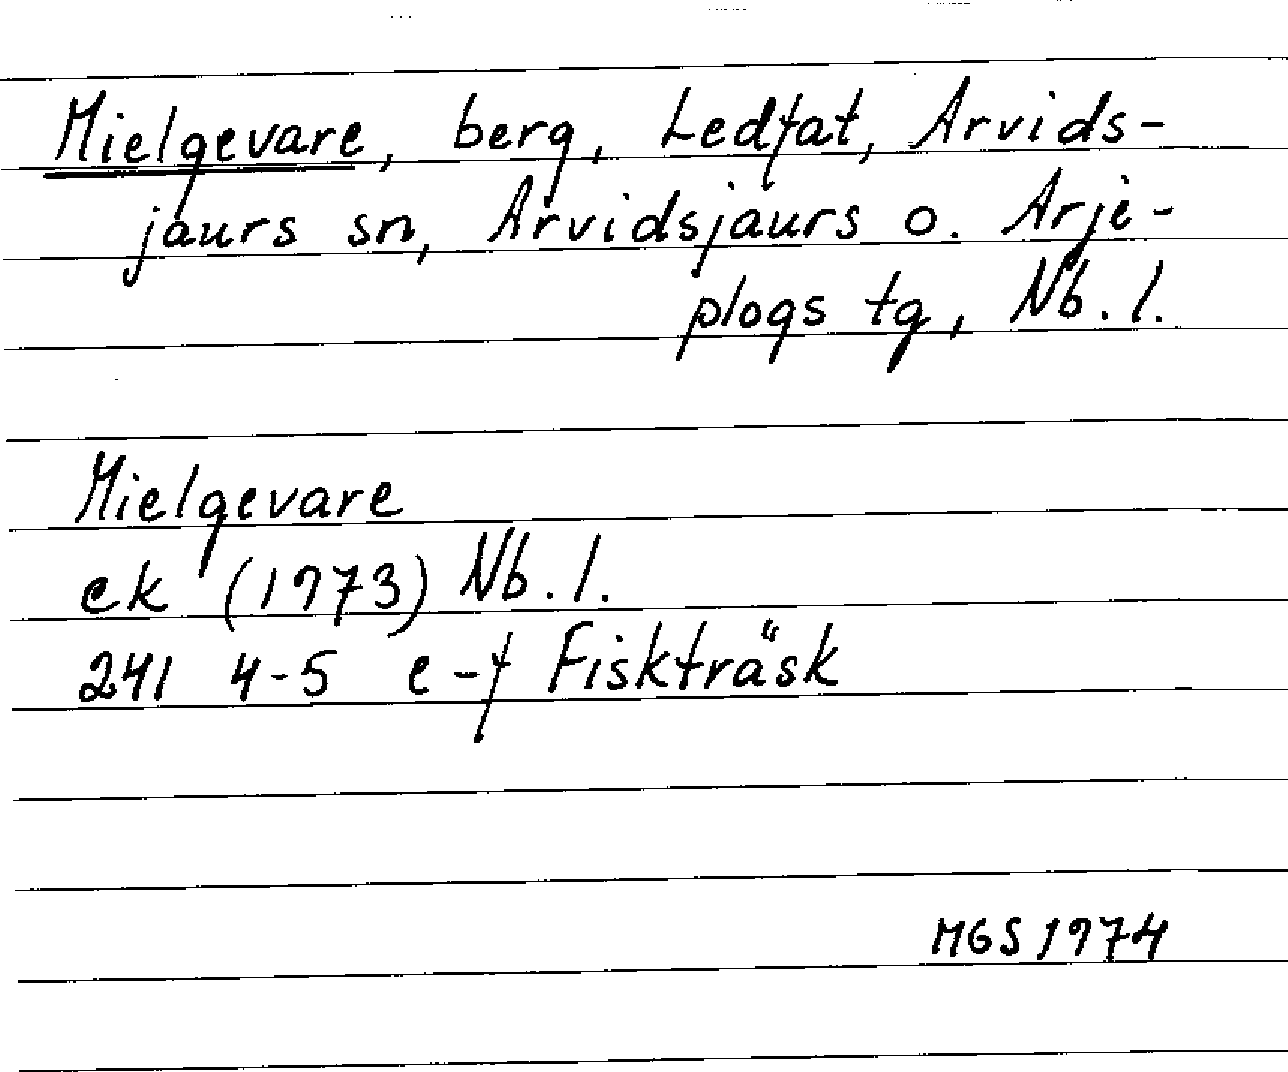 Mielgevare, berg, Ledfat, Arvids-
jaurs sn, Arvidsjaurs o. Arje-
plogs tg, Nb. l.
Mielgevare
ek (1973) Nb. l.
241 4-5 e-f Fiskträsk
MGS 1974